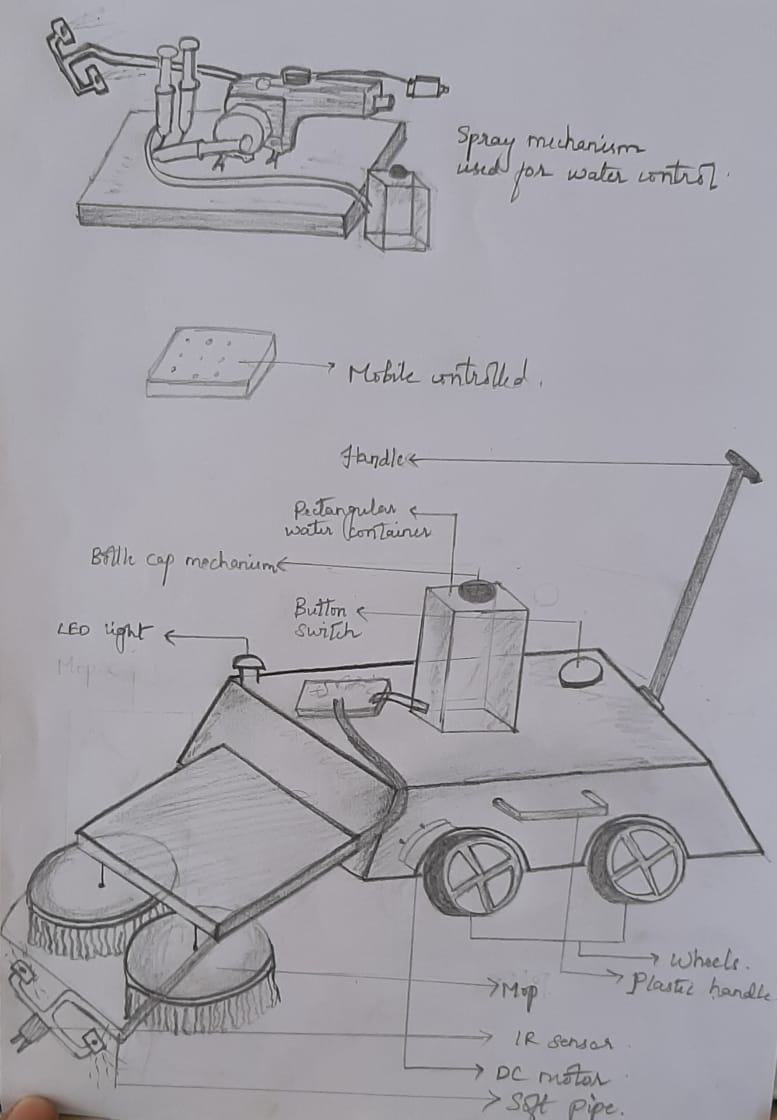 Spray mechanism
used for water control.
Mobile controlled.
Handle
Rectangular
water container
Bottle cap mechanism
Button
switch
LED light
Mop
Wheels.
Plastic handle
Mop
IR sensor
DC motor
Soft pipe.